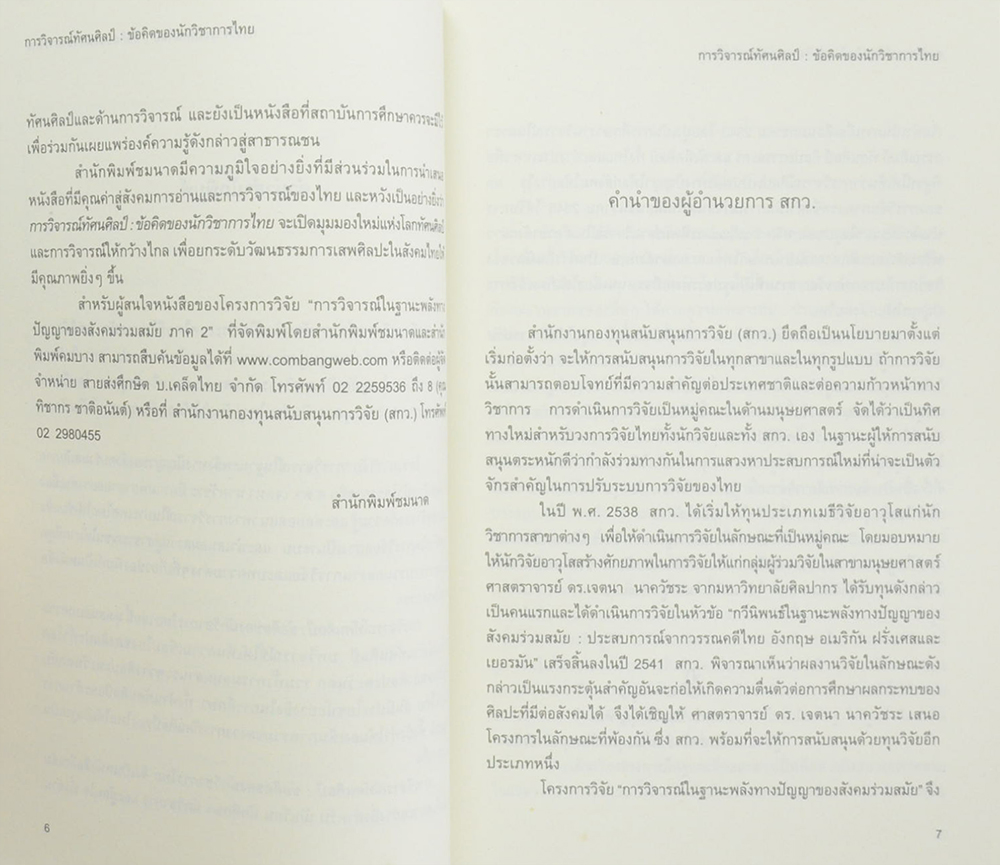 การวิจารณ์ทัศนศิลป์ : ข้อคิดของนักวิชาการไทย
ทัศนศิลป์และด้านการวิจารณ์ และยังเป็นหนังสือที่สถาบันการศึกษาควรจะมีไว้
เพื่อร่วมกันเผยแพร่องค์ความรู้ดังกล่าวสู่สาธารณชน
สำนักพิมพ์ชมนาดมีความภูมิใจอย่างยิ่งที่มีส่วนร่วมในการนำเสนอ
หนังสือที่มีคุณค่าสู่สังคมการอ่านและการวิจารณ์ของไทย และหวังเป็นอย่างยิ่งว่า
การวิจารณ์ทัศนศิลป์ : ข้อคิดของนักวิชาการไทย จะเปิดมุมมองใหม่แห่งโลกทัศนศิลป์
และการวิจารณ์ให้กว้างไกล เพื่อยกระดับวัฒนธรรมการเสพศิลปะในสังคมไทยให้
มีคุณภาพยิ่งๆ ขึ้น
สำหรับผู้สนใจหนังสือของโครงการวิจัย “การวิจารณ์ในฐานะพลังทาง
ปัญญาของสังคมร่วมสมัย ภาค 2” ที่จัดพิมพ์โดยสำนักพิมพ์ชมนาดและสำนัก
พิมพ์คมบาง สามารถสืบค้นข้อมูลได้ที่ www.combangweb.com หรือติดต่อผู้จัด
จำหน่าย สายส่งศึกษิต บ.เคล็ดไทย จำกัด โทรศัพท์ 02 2259536 ถึง 8 (คุณ
ทิชากร ชาติอนันต์) หรือที่ สำนักงานกองทุนสนับสนุนการวิจัย (สกว.) โทรศัพท์
02 2980455
สำนักพิมพ์ชมนาด
6
การวิจารณ์ทัศนศิลป์ : ข้อคิดของนักวิชาการไทย
คำนำของผู้อำนวยการ สกว.
สำนักงานกองทุนสนับสนุนการวิจัย (สกว.) ยึดถือเป็นนโยบายมาตั้งแต่
เริ่มก่อตั้งว่า จะให้การสนับสนุนการวิจัยในทุกสาขาและในทุกรูปแบบ ถ้าการวิจัย
นั้นสามารถตอบโจทย์ที่มีความสำคัญต่อประเทศชาติและต่อความก้าวหน้าทาง
วิชาการ การดำเนินการวิจัยเป็นหมู่คณะในด้านมนุษยศาสตร์ จัดได้ว่าเป็นทิศ
ทางใหม่สำหรับวงการวิจัยไทยทั้งนักวิจัยและทั้ง สกว. เอง ในฐานะผู้ให้การสนับ
สนุนตระหนักดีว่ากำลังร่วมทางกันในการแสวงหาประสบการณ์ใหม่ที่น่าจะเป็นตัว
จักรสำคัญในการปรับระบบการวิจัยของไทย
ในปี พ.ศ. 2538 สกว. ได้เริ่มให้ทุนประเภทเมธีวิจัยอาวุโสแก่นัก
วิชาการสาขาต่างๆ เพื่อให้ดำเนินการวิจัยในลักษณะที่เป็นหมู่คณะ โดยมอบหมาย
ให้นักวิจัยอาวุโสสร้างศักยภาพในการวิจัยให้แก่กลุ่มผู้ร่วมวิจัยในสาขามนุษยศาสตร์
ศาสตราจารย์ ดร.เจตนา นาควัชระ จากมหาวิทยาลัยศิลปากร ได้รับทุนดังกล่าว
เป็นคนแรกและได้ดำเนินการวิจัยในหัวข้อ “กวีนิพนธ์ในฐานะพลังทางปัญญาของ
สังคมร่วมสมัย : ประสบการณ์จากวรรณคดีไทย อังกฤษ อเมริกัน ฝรั่งเศสและ
เยอรมัน” เสร็จสิ้นลงในปี 2541 สกว. พิจารณาเห็นว่าผลงานวิจัยในลักษณะดัง
กล่าวเป็นแรงกระตุ้นสำคัญอันจะก่อให้เกิดความตื่นตัวต่อการศึกษาผลกระทบของ
ศิลปะที่มีต่อสังคมได้ จึงได้เชิญให้ ศาสตราจารย์ ดร. เจตนา นาควัชระ เสนอ
โครงการในลักษณะที่พ้องกัน ซึ่ง สกว. พร้อมที่จะให้การสนับสนุนด้วยทุนวิจัยอีก
ประเภทหนึ่ง
โครงการวิจัย “การวิจารณ์ในฐานะพลังทางปัญญาของสังคมร่วมสมัย” จึง
7